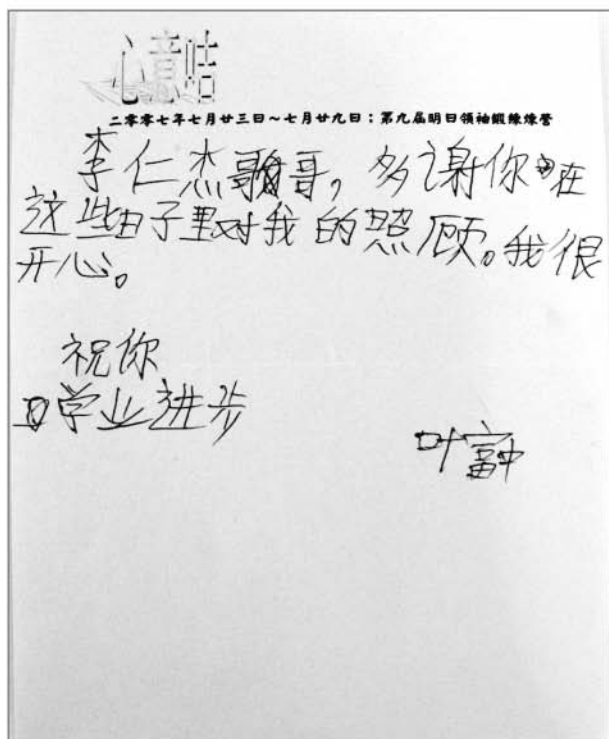 心意咭
二零零七年七月廿三日～七月廿九日：第九屆明日領袖鍛鍊營
李仁杰哥哥，多谢你在
这些日子里对我的照顾。我很
开心。
祝你
学业进步
叶富中